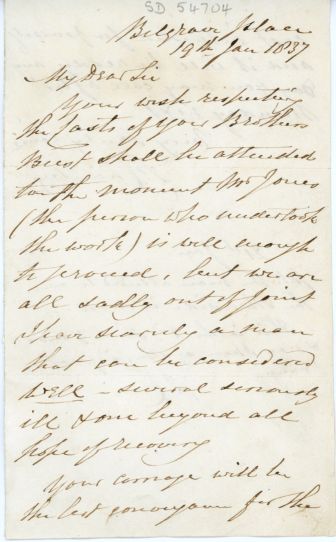 SD 54704
Belgrave Place
19th Jan 1837
My Dear Sir
Your wish respecting
the Casts of your Brothers
Bust shall be attended
to the moment Mr Jones
(the person who undertook
the work) is well enough
to proceed, but we are
all sadly out of joint
I have scarcely a man
that can be considered
well - several seriously
ill & one beyond all
hope of recovery
Your carriage will be
the best conveyance for the